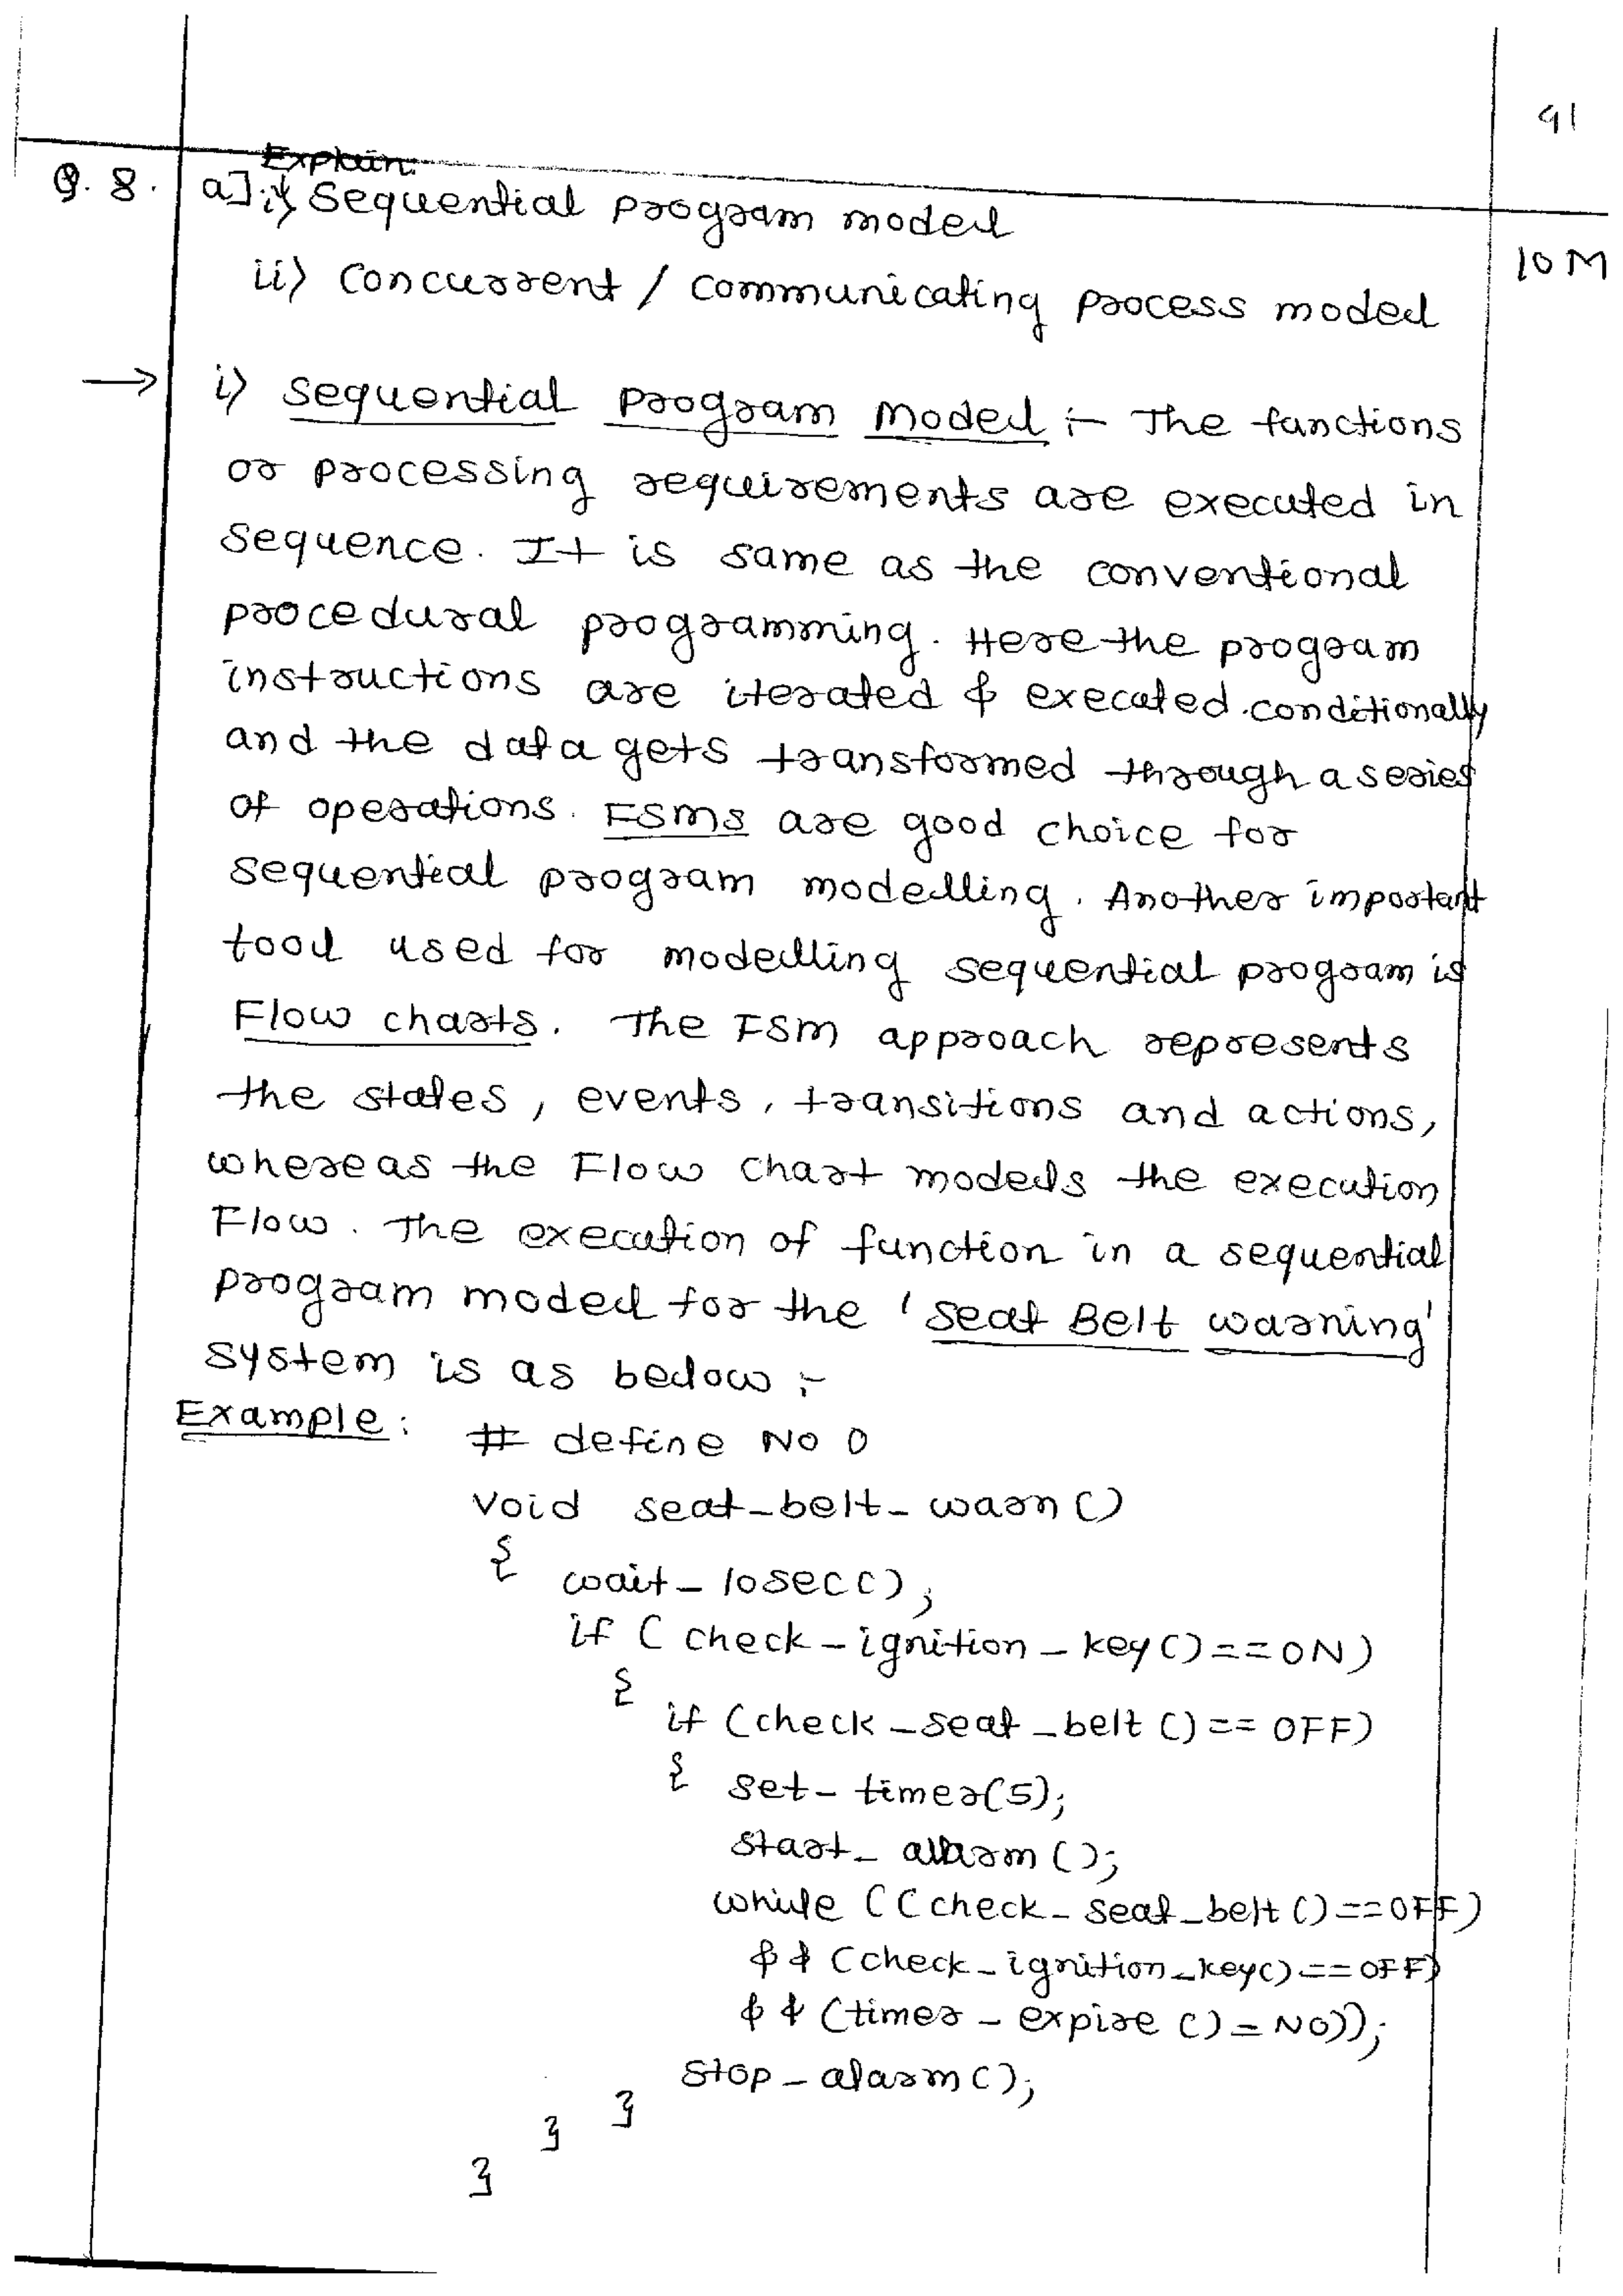 41
Explain
Q. 8. a] i) Sequential program model
10 M
ii) Concurrent / Communicating process model
→ i) Sequential Program Model :- The functions
or processing requirements are executed in
sequence. It is same as the conventional
procedural programming. Here the program
instructions are iterated & executed conditionally
and the data gets transformed through a series
of operations. FSMs are good choice for
sequential program modelling. Another important
tool used for modelling sequential program is
Flow charts. The FSM approach represents
the states, events, transitions and actions,
whereas the Flow chart models the execution
Flow. The execution of function in a sequential
program model for the 'Seat Belt warning'
system is as below :-
Example: # define NO 0
void seat_belt_warn()
{
wait_10sec();
if ( check_ignition_key()==ON)
{
if (check_seat_belt()== OFF)
{ set_timer(5);
start_alarm();
while ((check_seat_belt()==OFF)
&& (check_ignition_key()==OFF)
&& (timer_expire()=NO));
stop_alarm();
}
}
}